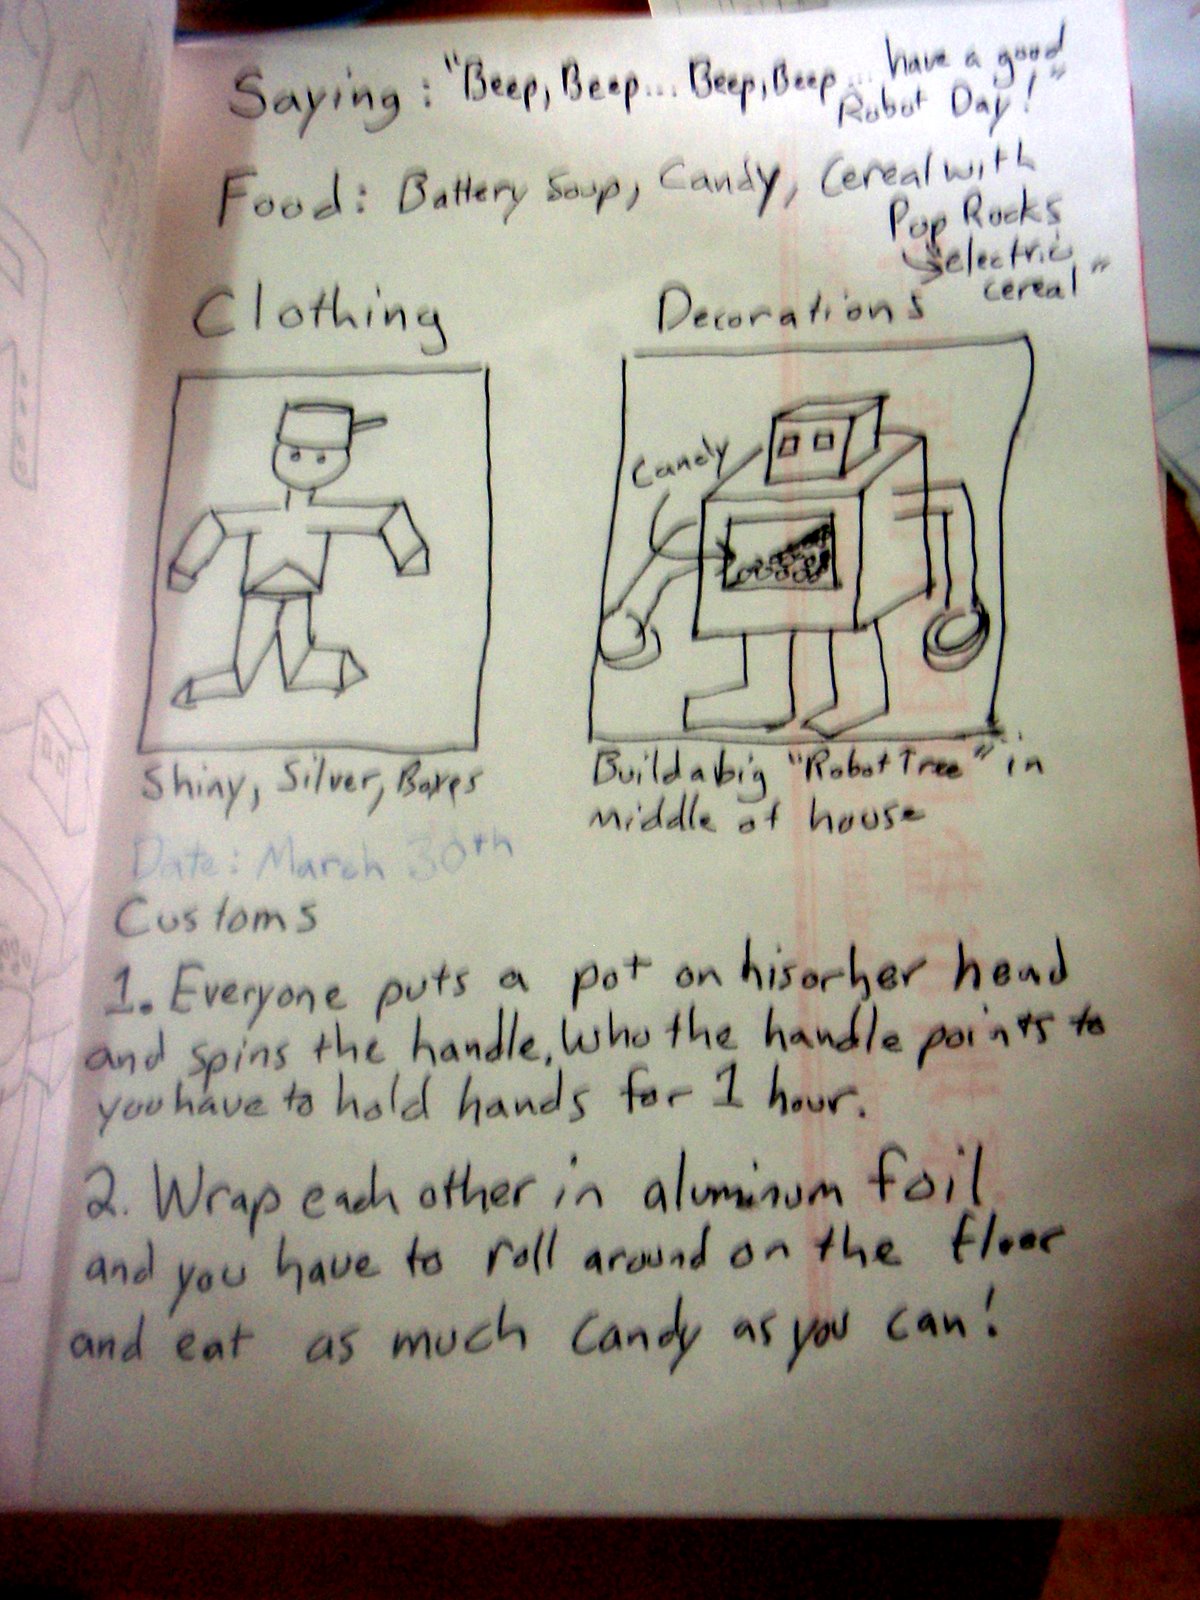 Saying: "Beep, Beep... Beep, Beep... have a good
Robot Day!"
Food: Battery Soup, Candy, Cereal with
Pop Rocks
electric
cereal"
Clothing
Decorations
Candy
Shiny, Silver, Boxes
Build a big "Robot Tree" in
middle of house
Date: March 30th
Customs
1. Everyone puts a pot on his or her head
and spins the handle. Who the handle points to
you have to hold hands for 1 hour.
2. Wrap each other in aluminum foil
and you have to roll around on the floor
and eat as much candy as you can!